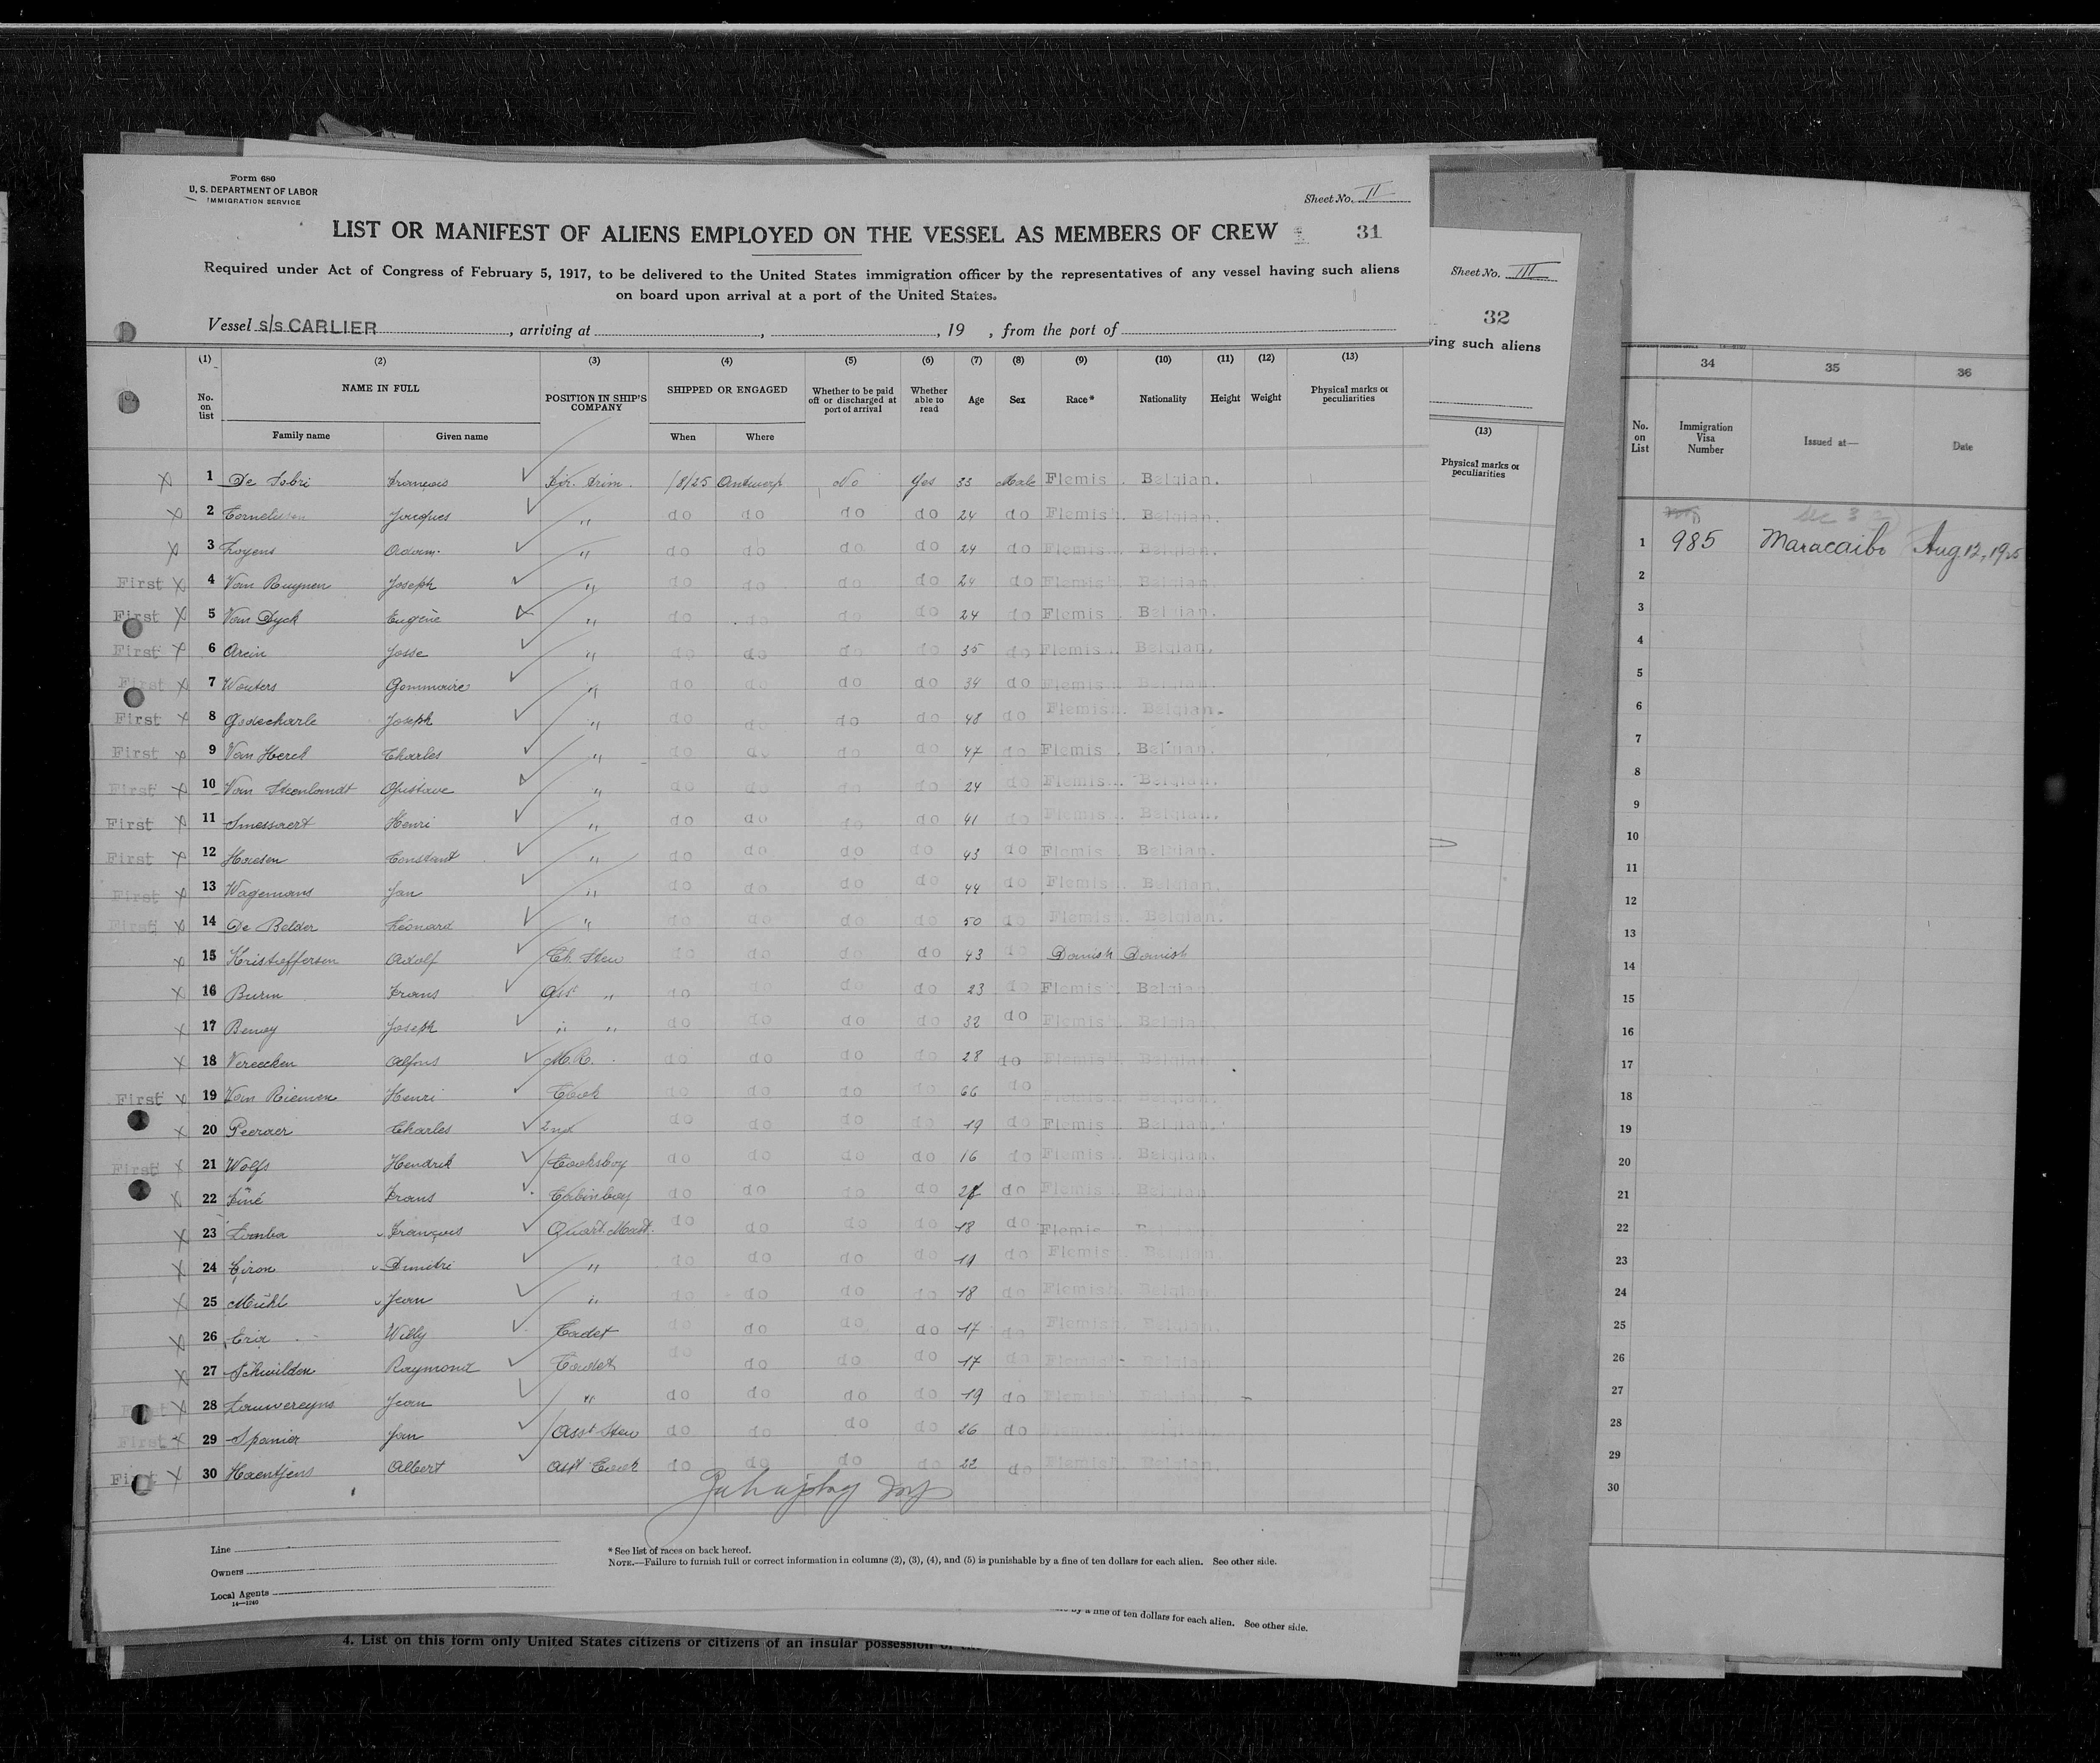 Form 680
U. S. DEPARTMENT OF LABOR
IMMIGRATION SERVICE
Sheet No. II
LIST OR MANIFEST OF ALIENS EMPLOYED ON THE VESSEL AS MEMBERS OF CREW 31
Required under Act of Congress of February 5, 1917, to be delivered to the United States immigration officer by the representatives of any vessel having such aliens
on board upon arrival at a port of the United States.
Vessel s/s CARLIER, arriving at , , 19 , from the port of
(1) (2) (3) (4) (5) (6) (7) (8) (9) (10) (11) (12) (13)
No. on list NAME IN FULL POSITION IN SHIP'S COMPANY SHIPPED OR ENGAGED Whether to be paid off or discharged at port of arrival Whether able to read Age Sex Race* Nationality Height Weight Physical marks or peculiarities
Family name Given name When Where
X 1 De Sobri François Fir. Trim. 1/8/25 Antwerp No Yes 33 Male Flemis. Belgian.
X 2 Cornelissen Jacques " do do do do 24 do Flemish. Belgian.
X 3 Loyens Adam " do do do do 24 do Flemish. Belgian.
First X 4 Van Ruynen Joseph " do do do do 24 do Flemis. Belgian.
First X 5 Van Dyck Eugène " do do do do 24 do Flemis. Belgian.
First X 6 Arcin Josse " do do do do 35 do Flemis. Belgian.
First X 7 Wouters Gommaire " do do do do 34 do Flemis. Belgian.
First X 8 Godecharle Joseph " do do do do 48 do Flemish. Belgian.
First X 9 Van Herck Charles " do do do do 47 do Flemis. Belgian.
First X 10 Van Steenlandt Gustave " do do do do 24 do Flemis. Belgian.
First X 11 Smessaert Henri " do do do do 41 do Flemis. Belgian.
First X 12 Haesen Constant " do do do do 43 do Flemis. Belgian.
First X 13 Wagemans Jan " do do do do 44 do Flemis. Belgian.
First X 14 De Belder Léonard " do do do do 50 do Flemish. Belgian.
X 15 Kristoffersen Adolf Ch. Stew do do do do 43 do Danish Danish
X 16 Burm Frans Asst " do do do do 23 do Flemis Belgian
X 17 Bemoy Joseph " " do do do do 32 do Flemis Belgia
X 18 Vereecken Alfons M.R. do do do do 28 do Flemis Belgian
First X 19 Van Riemen Henri Cook do do do do 66 do
X 20 Peeraer Charles 2nd do do do do 19 do Flemis Belgian.
First X 21 Wolfs Hendrik Cooksboy do do do do 16 do Flemis. Belgian.
X 22 Finé Frans Cabinboy do do do do do Flemis Belgian
X 23 Lomba François Quart. Mast. do do do do 18 do Flemis
X 24 Ciron Dimitri " do do do do 19 do Flemis. Belgian.
X 25 Mühl Jean " do do do do 18 do Flemish. Belgian.
X 26 Willy Cadet do do do do 17 do Flemis. Belgian.
X 27 Schwilden Raymond Cadet do do do do 17 do Flemis Belgian
X 28 Louwereyns Jean " do do do do 19 do Flemish Belgian
First X 29 Spanier Jan Asst Stew do do do do 26 do
First X 30 Haentjens Albert Asst Cook do do do do 22 do Flemish Belgian.
Line
Owners
Local Agents
14—1240
* See list of races on back hereof.
NOTE.—Failure to furnish full or correct information in columns (2), (3), (4), and (5) is punishable by a fine of ten dollars for each alien. See other side.
by a fine of ten dollars for each alien. See other side.
4. List on this form only United States citizens or citizens of an insular possession
Sheet No. III
32
ving such aliens
(13)
Physical marks or peculiarities
34 35 36
No. on List Immigration Visa Number Issued at— Date
1 985 Maracaibo Aug 12, 1925
2
3
4
5
6
7
8
9
10
11
12
13
14
15
16
17
18
19
20
21
22
23
24
25
26
27
28
29
30